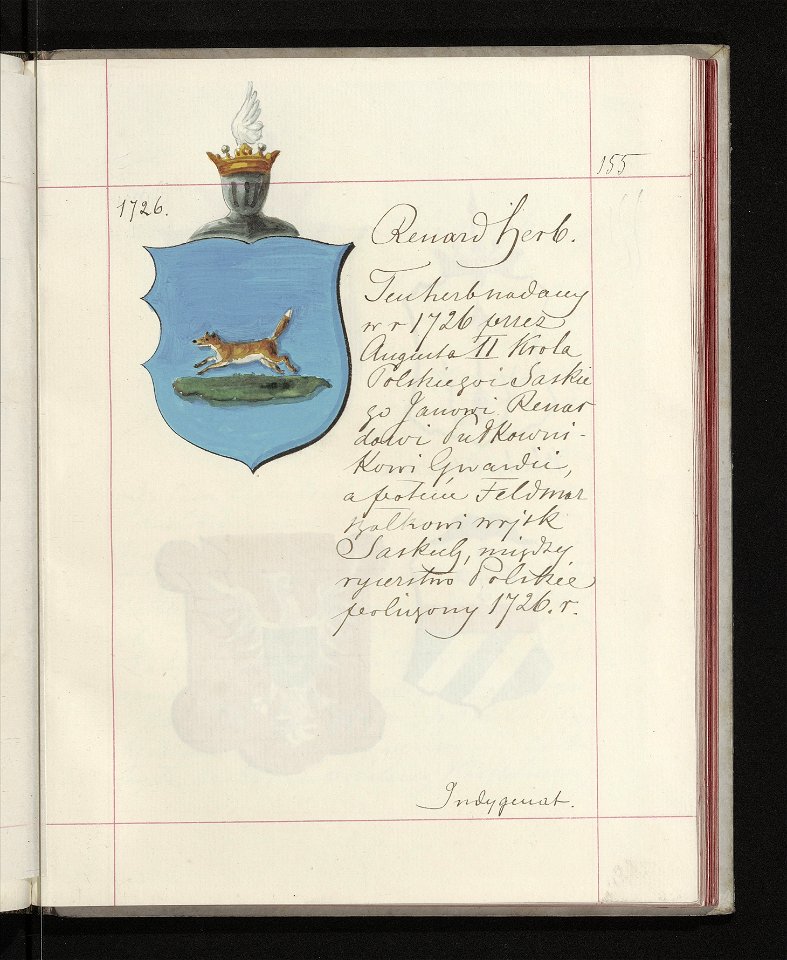 155
1726.
Renard Herb.
Ten herb nadany
w r 1726 przez
Augusta II Krola
Polskiego i Saskie
go Janowi Renar
dowi Pułkowni-
kowi Gwardii,
a potem Feldmar
szałkowi wojsk
Saskich, między
rycerstwo Polskie
policzony 1726. r.
Indygenat.